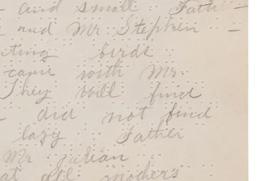 - and small Faith -
and Mr. Stephen -
iting birds
came with Mr.
They will find
- did not find
lazy Father
Mr. Julian
at all mother's